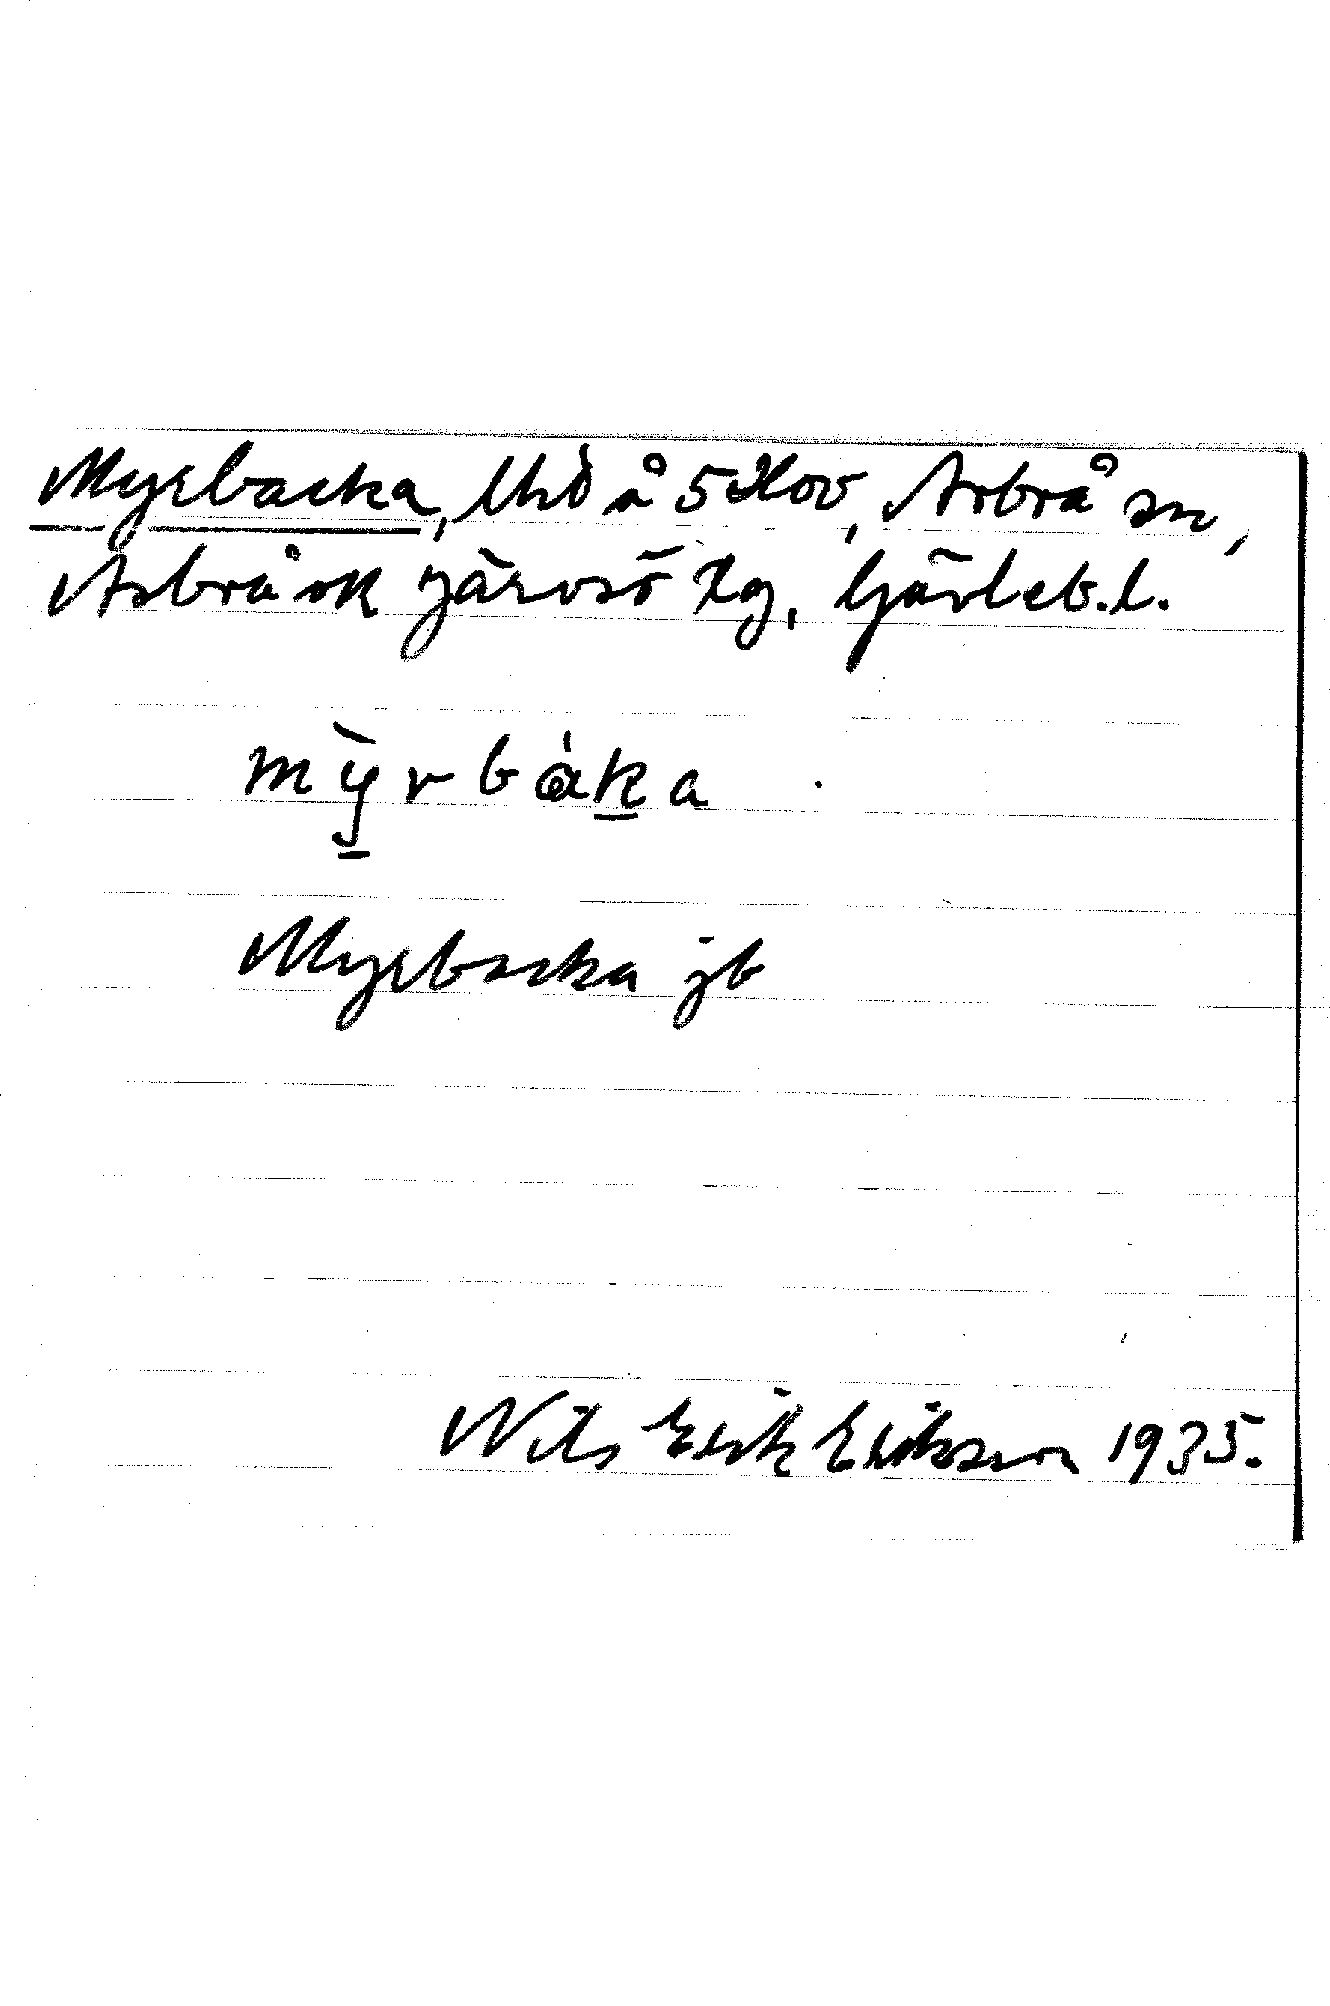 Myrbacka, lhd å 5 Hov, Arbrå sn,
Arbrå ok Järvsö tg, Gävleb. l.
mỳrbáka
Myrbacka jb
Nils Erik Eriksson 1935.